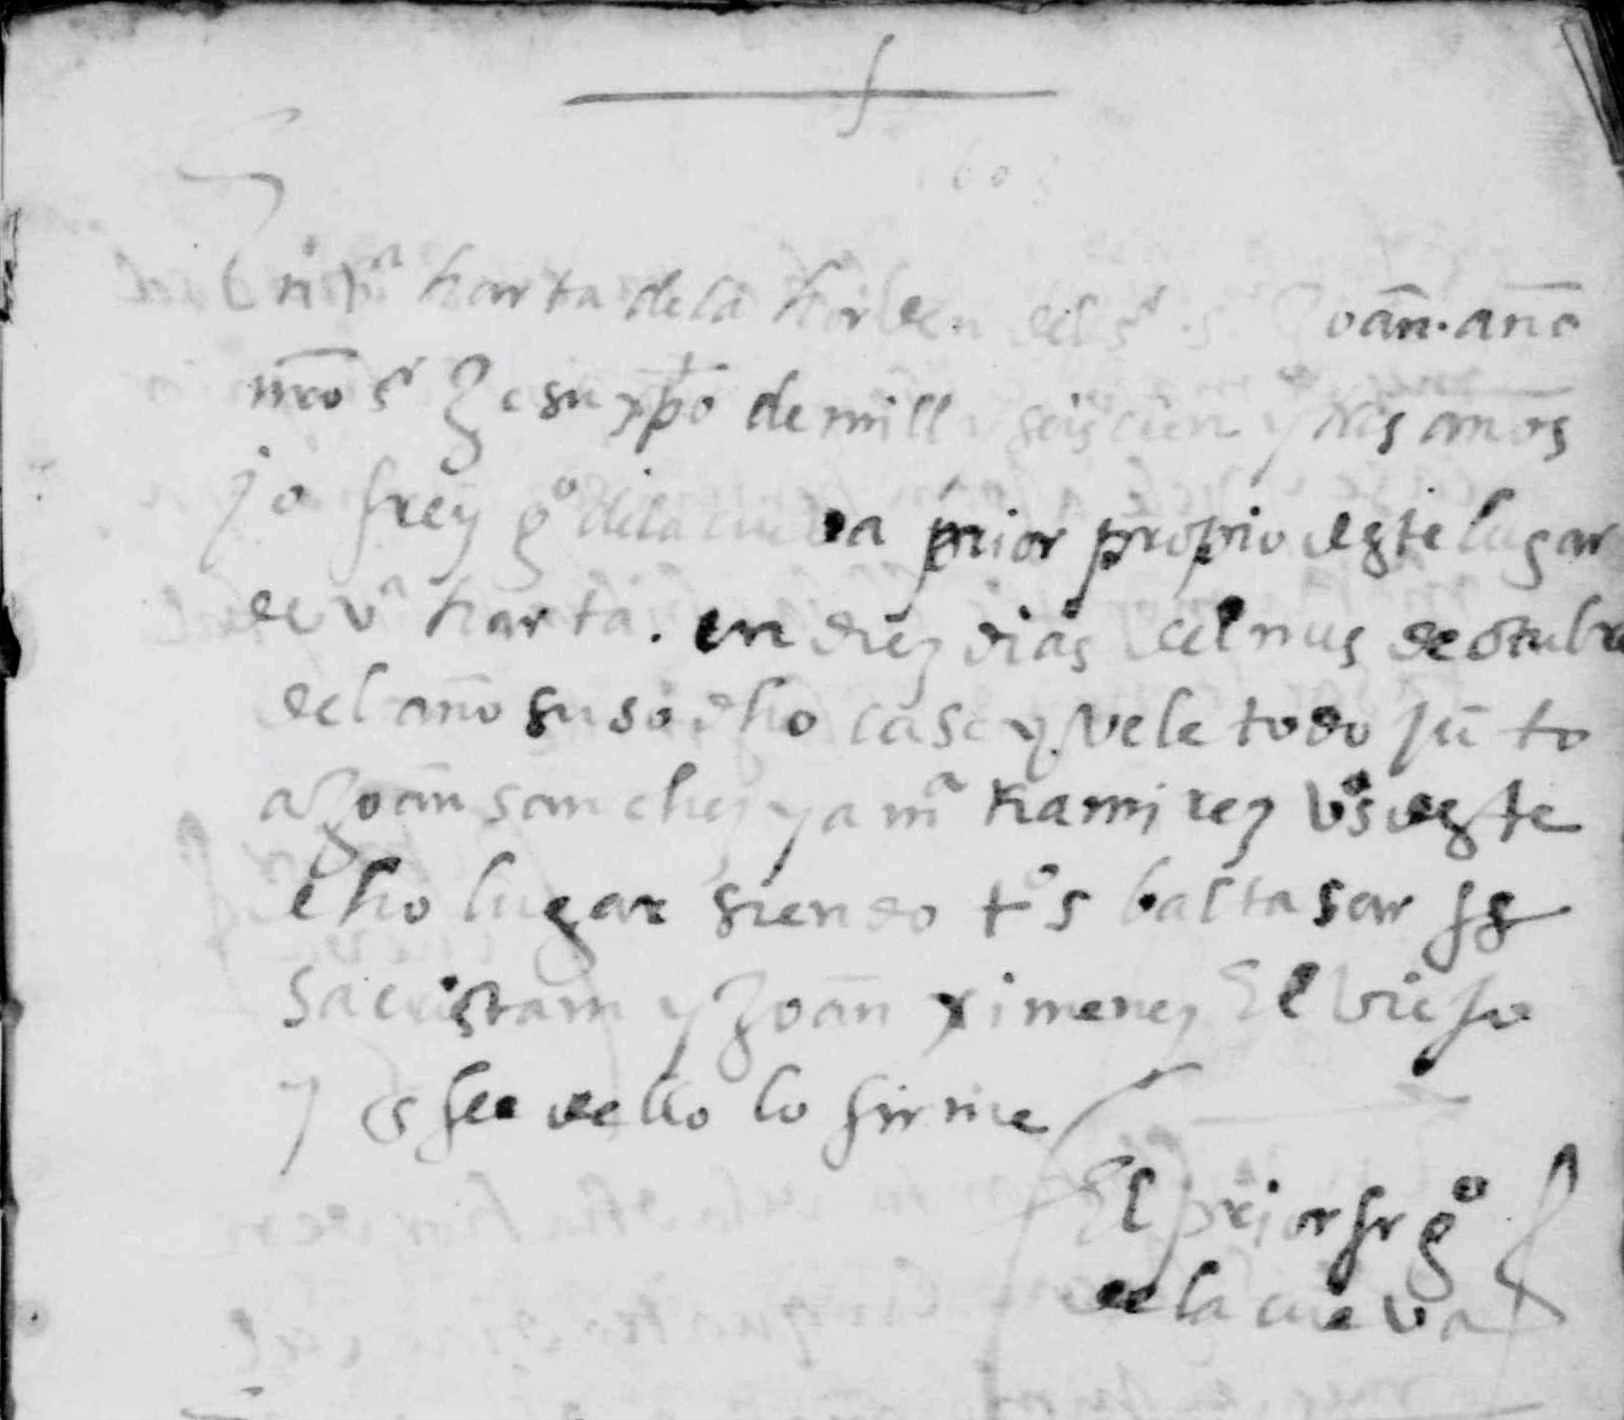 1603
En vª harta de la horden del sʳ s. Joan. año
nro sʳ Jesu xpo de mill y seiscien y tres años
jo frey gº de la cueva prior propio deste lugar
de vª harta. en diez dias del mes de otubre
del año susodho case y vele todo jūto
a Joan sanchez y a mª Ramirez vºs deste
dho lugar siendo tºs baltasar
sacristam y Joan ximenez El viejo
y en fee dello lo firme
El prior fr gº
de la cueva